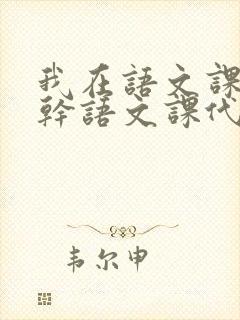 我在語文課
幹語文課代
韦尔申